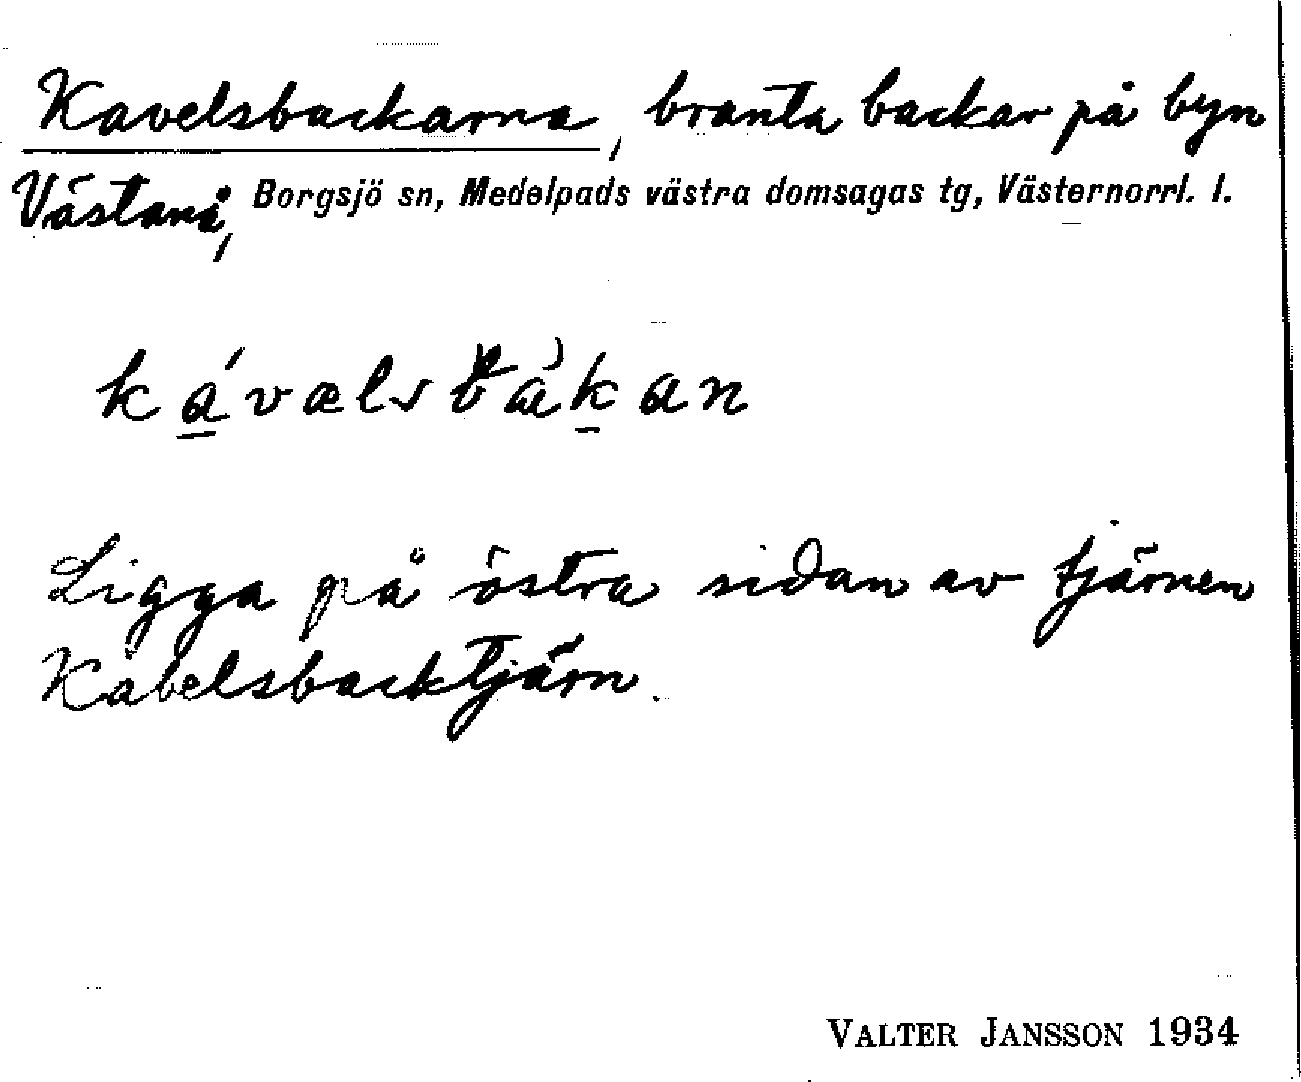 Kavelsbackarna, branta backar på byn
Västanå, Borgsjö sn, Medelpads västra domsagas tg, Västernorrl. l.
ká̱vælsbàḵan
Ligga på östra sidan av tjärnen
Kabelsbacktjärn.
VALTER JANSSON 1934